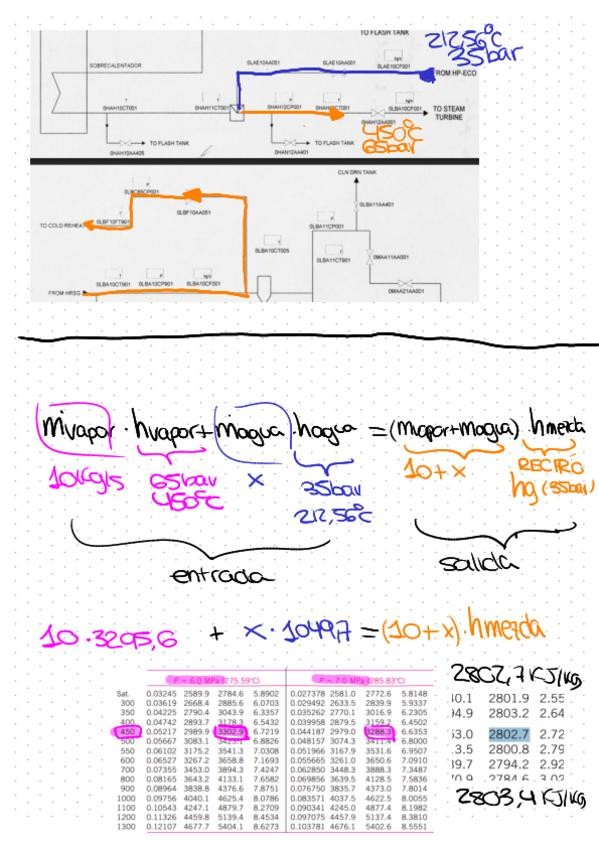 TO FLASH TANK
212,56°C
35bar
SOBRECALENTADOR
0LAE10AA001
0LAE10CP001
FROM HP-ECO
0HAH10CT001
0HAH11CT001
0HAH12CP001
0LBA10CP001
TO STEAM
TURBINE
450°C
65bar
0HAH10AA405
TO FLASH TANK
0HAN12AA401
TO FLASH TANK
CLN DRN TANK
0LBF10FT901
0LBF10AA051
0LBA11AA401
TO COLD REHEAT
0LBA11CP001
0LBA10CT005
0LBA11CT901
0MAA11AA001
FROM HRSG
0LBA10CT901
0LBA10CP901
0LBA10CP001
0MAA21AA001
ṁvapor · hvapor + ṁagua · hagua = (ṁvapor+ṁagua) · hmezcla
10kg/s
65bar
450°C
x
35bar
212,56°C
10+x
RECIRÓ
hg (35bar)
entrada
salida
10·3295,6 + x·1049,7 = (10+x)·hmezcla
P = 6.0 MPa (275.59°C) P = 7.0 MPa (285.83°C)
Sat. 0.03245 2589.9 2784.6 5.8902 0.027378 2581.0 2772.6 5.8148
300 0.03619 2668.4 2885.6 6.0703 0.029492 2633.5 2839.9 5.9337
350 0.04225 2790.4 3043.9 6.3357 0.035262 2770.1 3016.9 6.2305
400 0.04742 2893.7 3178.3 6.5432 0.039958 2879.5 3159.2 6.4502
450 0.05217 2989.9 3302.9 6.7219 0.044187 2979.0 3288.3 6.6353
500 0.05667 3083.1 3423.1 6.8826 0.048157 3074.3 3411.4 6.8000
550 0.06102 3175.2 3541.3 7.0308 0.051966 3167.9 3531.6 6.9507
600 0.06527 3267.2 3658.8 7.1693 0.055665 3261.0 3650.6 7.0910
700 0.07355 3453.0 3894.3 7.4247 0.062850 3448.3 3888.3 7.3487
800 0.08165 3643.2 4133.1 7.6582 0.069856 3639.5 4128.5 7.5836
900 0.08964 3838.8 4376.6 7.8751 0.076750 3835.7 4373.0 7.8014
1000 0.09756 4040.1 4625.4 8.0786 0.083571 4037.5 4622.5 8.0055
1100 0.10543 4247.1 4879.7 8.2709 0.090341 4245.0 4877.4 8.1982
1200 0.11326 4459.8 5139.4 8.4534 0.097075 4457.9 5137.4 8.3810
1300 0.12107 4677.7 5404.1 8.6273 0.103781 4676.1 5402.6 8.5551
2802,7 KJ/kg
2801.9 2.55
2803.2 2.64
2802.7 2.72
2800.8 2.79
2794.2 2.92
2784.6 3.02
2803,4 KJ/kg